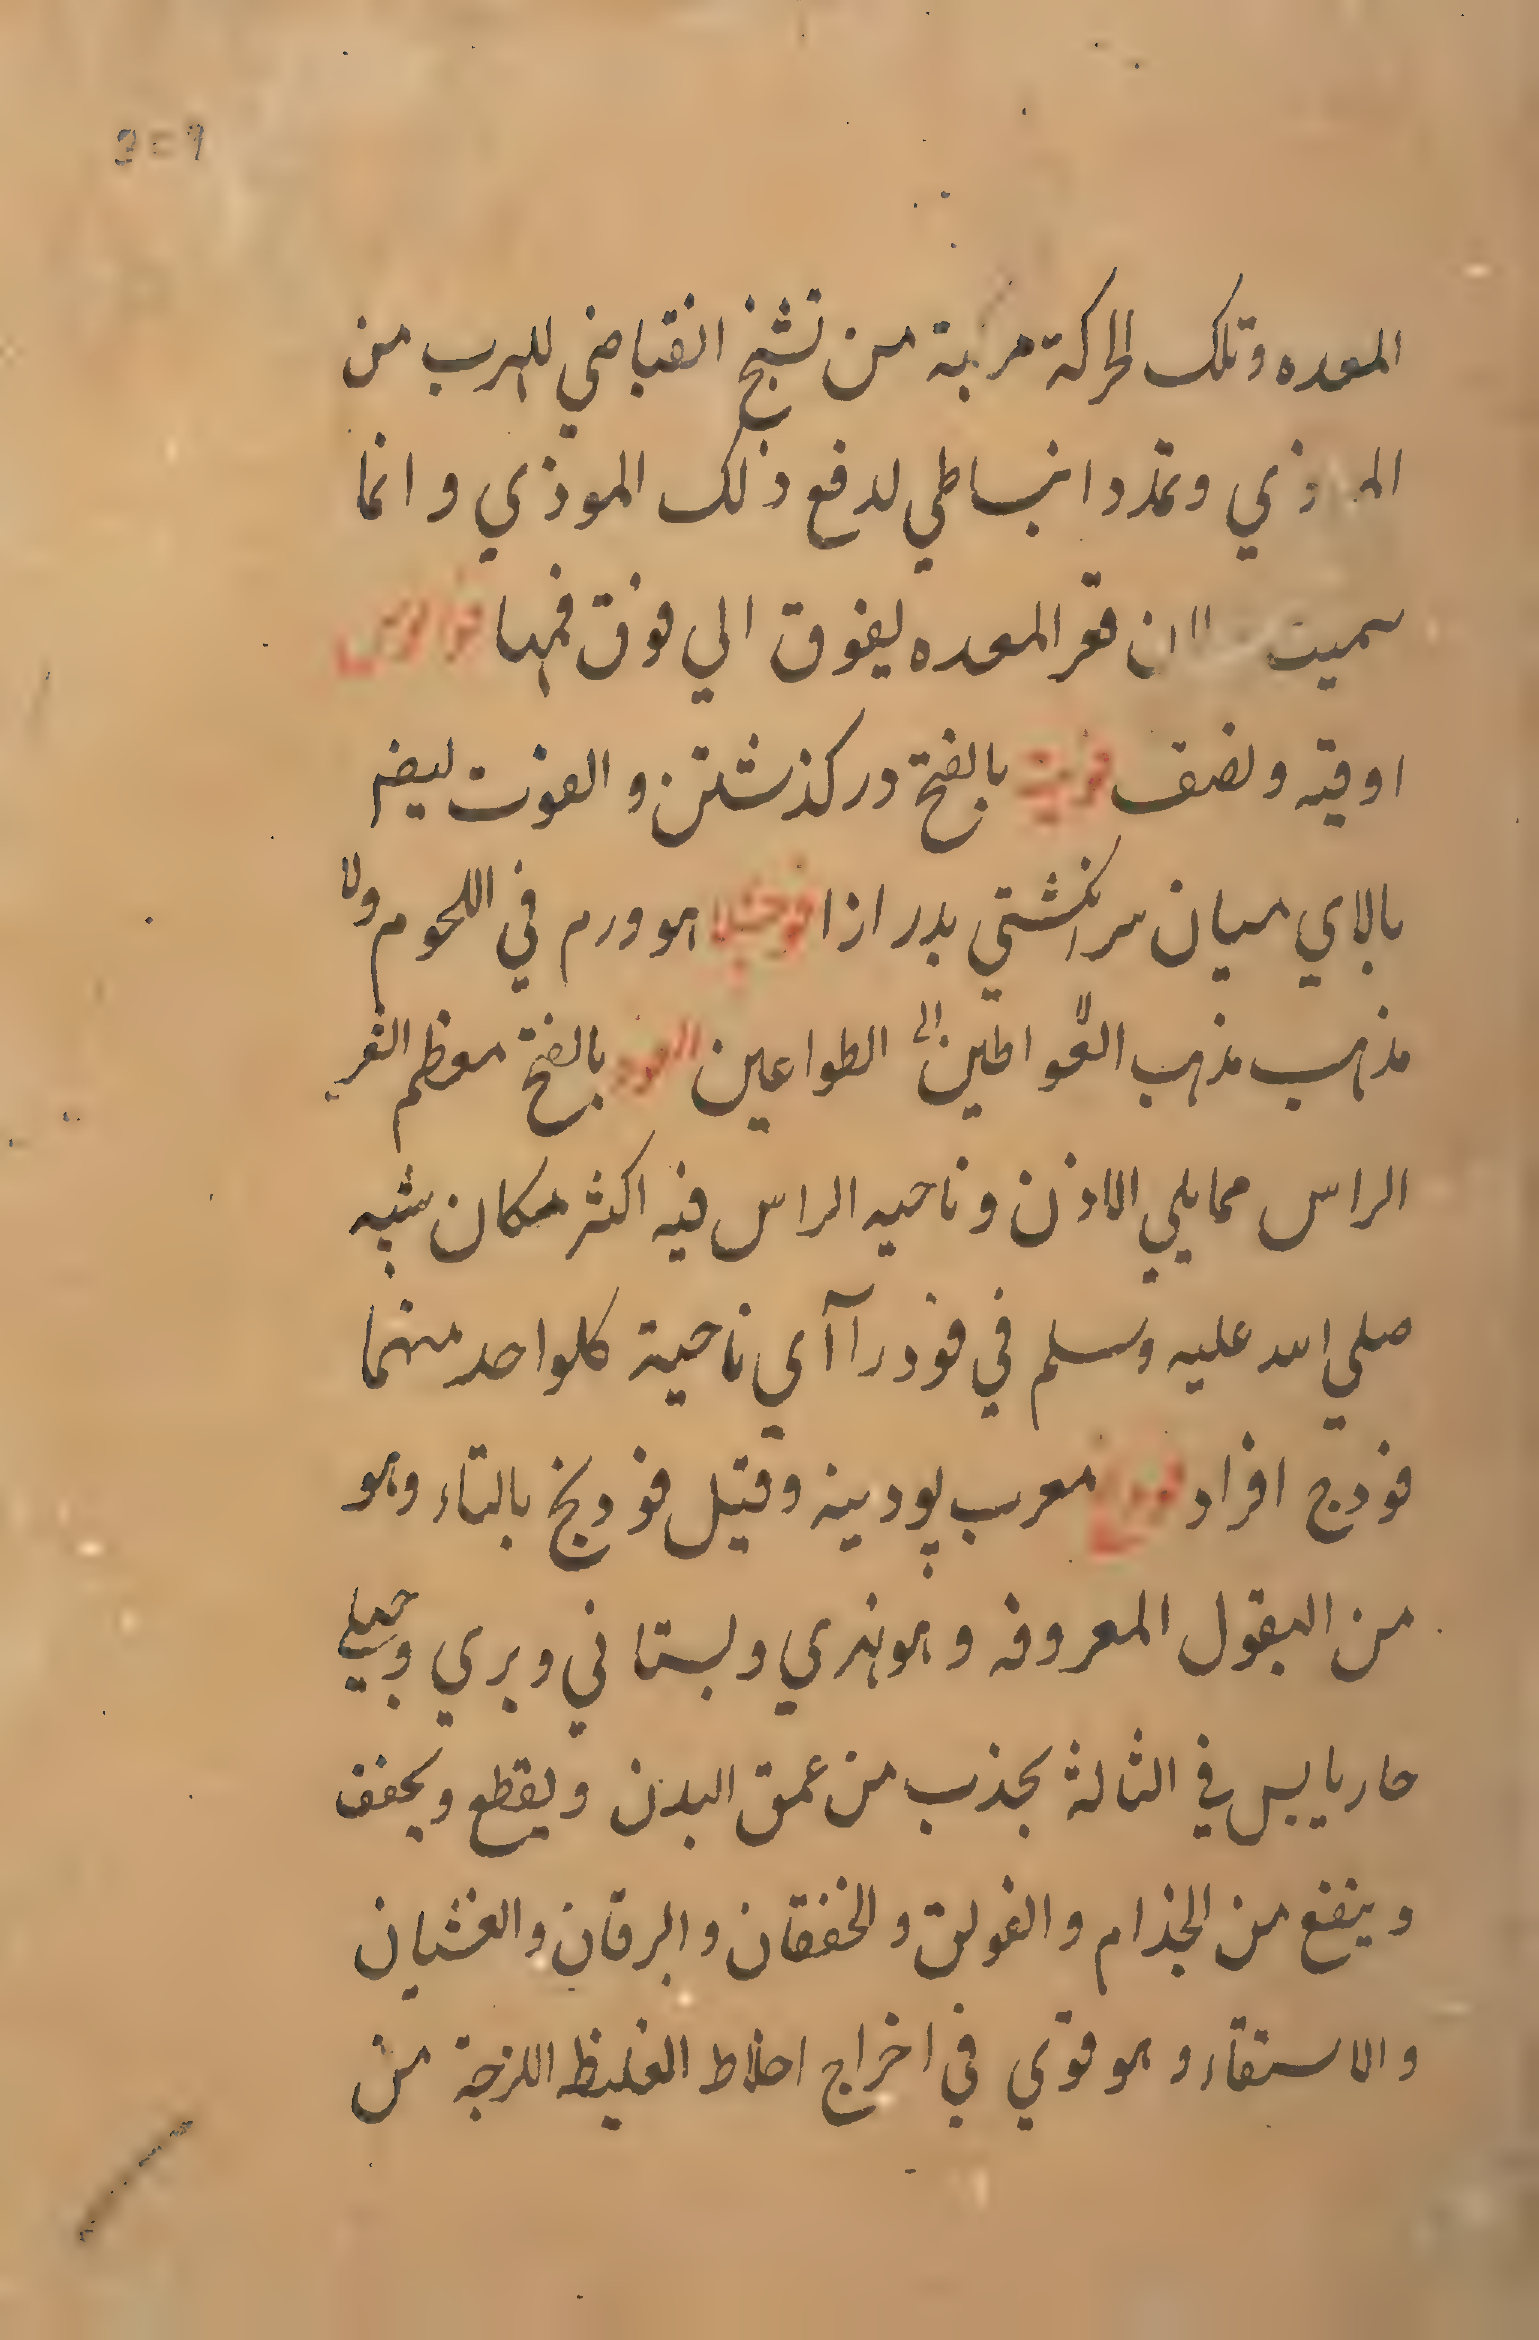 المعده وتلك الحركة مركبة من تشنج انقباضي للهرب من
الموذي وتمدد انبساطي لدفع ذلك الموذي وانما
سميت لان قعر المعده ليفوق الي فوق فمها
اوقيه ونصف بالفتح در كذشتن و الفوت ليضم
بالاي ميان سر انكشتي بدرازا هو ورم في اللحوم ولا
مذهب مذهب الطواعين بالفتح معظم الشعر
الراس مما يلي الاذن وناحيه الراس فيه اكثر مكان شبه
صلي الله عليه وسلم في فودرا آي ناحية كلواحد منهما
فودج افراد فودنج معرب پودينه وقيل فودنج بالتاء وهو
من البقول المعروفه وهو نهري وبستاني وبري وجبلي
حار يابس في الثالثة يجذب من عمق البدن ويقطع ويجفف
وينفع من الجذام والفولق والخفقان واليرقان والغشيان
والاستقاء وهو قوي في اخراج اخلاط الغليظه اللزجة من